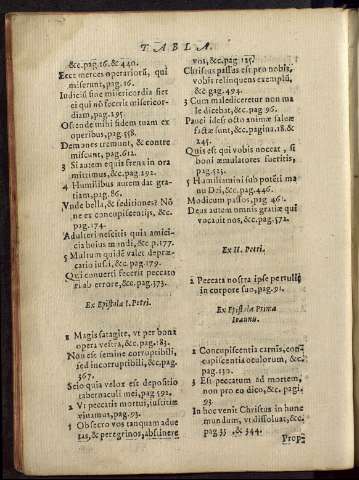 TABLA.
&c.pag.16.& 440.
Ecce merces operariorū, qui
misserunt, pag.16.
Iudiciū sine misericordia fiet
ei qui nō fecerit misericor-
diam, pag.195.
Ostende mihi fidem tuam ex
operibus, pag.558.
Demones tremunt, & contre
miscunt, pag.612.
3 Si autem equis frena in ora
mittimus, &c.pag.292.
4 Humilibus autem dat gra-
tiam, pag.86.
Vnde bella, & seditiones? Nō
ne ex concupiscentijs, &c.
pag.174.
Adulteri nescitis quia amici-
cia huius mundi, &c.p.177.
5 Multum quidē valet depræ-
catio iusti, &c.pag.179.
Qui converti fecerit peccato
ri ab errore, &c.pag.373.
Ex Epistola I. Petri.
1 Magis satagite, vt per bona
opera vestra, &c.pag.183.
Non ex semine corruptibili,
sed incorruptibili, &c.pag.
367.
Scio quia velox est depositio
tabernaculi mei, pag.592.
2 Vt peccatis mortui, iustitiæ
vivamus, pag.93.
3 Obsecro vos tanquam adue
nas, & peregrinos, abstinere
vos, &c.pag.125.
Christus passus est pro nobis,
vobis relinquens exemplū,
&c gag.494.
3 Cum malediceretur non ma
le dicebat, &c.pag.96.
Pauci idest octo animæ salvæ
factæ sunt, &c.pagina.18.&
245.
Quis est qui vobis noceat, si
boni æmulatores fueritis,
pag.525.
5 Humiliamini sub potēti ma
nu Dei, &c.pag.446.
Modicum passos, pag 461.
Deus autem omnis gratiæ qui
vocauit nos, &c.pag.572.
Ex II. Petri.
2 Peccata nostra ipse pertulit
in corpore suo, pag.91.
Ex Epistola Prima
Ioannis.
2 Concupiscentia carnis, con-
cupiscentia oculorum, &c.
pag.130.
3 Est peccatum ad mortem,
non pro eo dico, &c. pagi.
93.
In hoc venit Christus in hunc
mundum, vt dissoluat, &c.
pag.35 ,& 344.
Prop